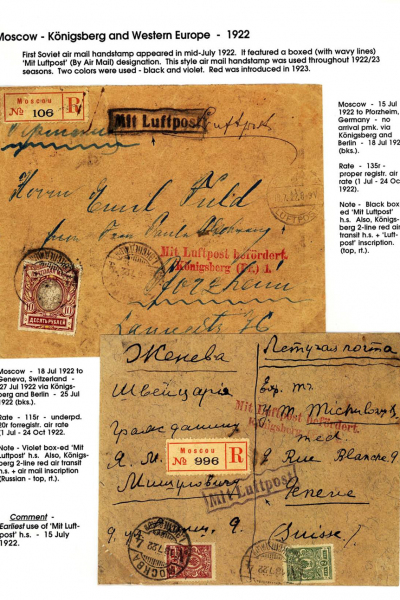 Moscow - Königsberg and Western Europe - 1922
First Soviet air mail handstamp appeared in mid-July 1922. It featured a boxed (with wavy lines)
'Mit Luftpost' (By Air Mail) designation. This style air mail handstamp was used throughout 1922/23
seasons. Two colors were used - black and violet. Red was introduced in 1923.
Moscou
№ 106 R
Mit Luftpost
Luftpost
Herrn Emil
Mit Luftpost befördert.
Königsberg (Pr.) 1.
Pforzheim
ДЕСЯТЬ РУБЛЕЙ
Moscow - 15 Jul
1922 to Pforzheim,
Germany - no
arrival pmk. via
Königsberg and
Berlin - 18 Jul 1922
(bks.).
Rate - 135r -
proper registr. air
rate (1 Jul - 24 Oct
1922).
Note - Black box-
ed 'Mit Luftpost'
h.s. Also, Königs-
berg 2-line red air
transit h.s + 'Luft-
post' inscription.
(top, rt.).
Moscow - 18 Jul 1922 to
Geneva, Switzerland -
27 Jul 1922 via Königs-
berg and Berlin - 25 Jul
1922 (bks.).
Rate - 115r - underpd.
20r forregistr. air rate
(1 Jul - 24 Oct 1922).
Note - Violet box-ed 'Mit
Luftpost' h.s. Also, Königs-
berg 2-line red air transit
h.s. + air mail inscription
(Russian - top, rt.).
Comment -
Earliest use of 'Mit Luft-
post' h.s. - 15 July
1922.
Женева
Швейцарія
Летучая почта
Mit Luftpost befördert.
Königsberg
Moscou
№ 996 R
Mit Luftpost
Rue Blanche 9
Geneve
(Suisse!)
МОСКВА